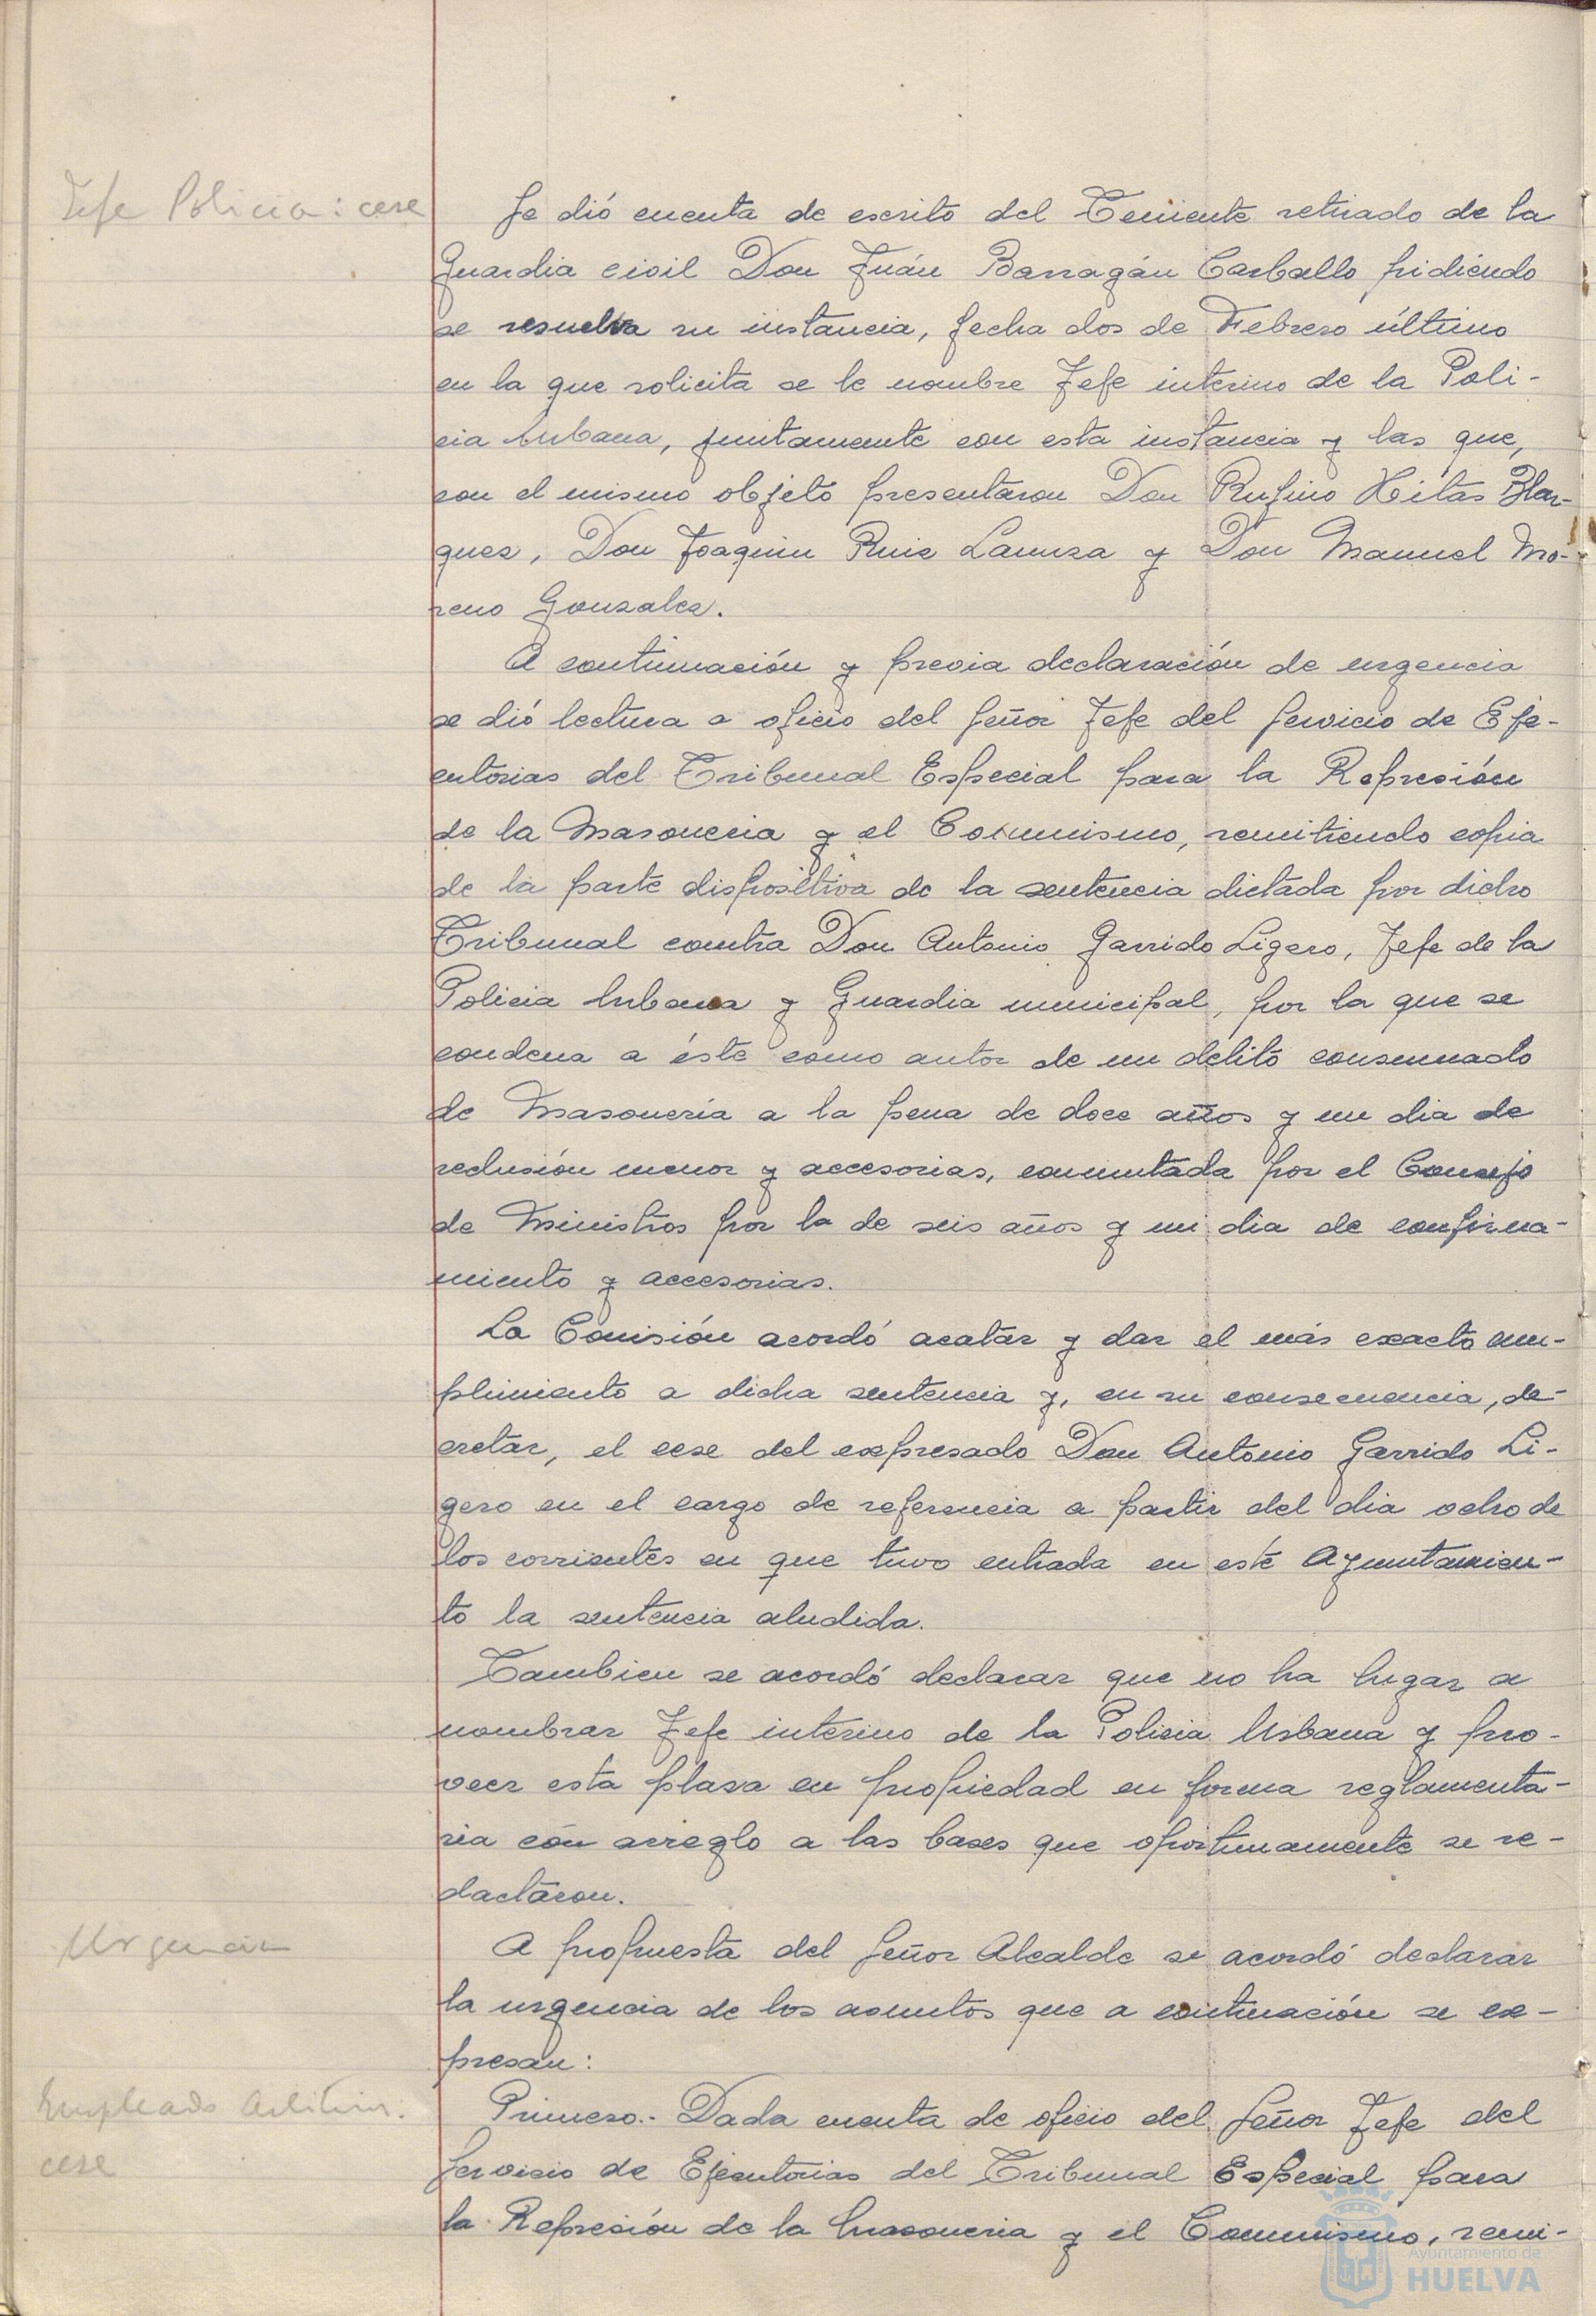 Jefe Policia: cese
Se dió cuenta de escrito del Teniente retirado de la
Guardia civil Don Juán Barragán Carballo pidiendo
se resuelva su instancia, fecha dos de Febrero último
en la que solicita se le nombre Jefe interino de la Poli-
cia Urbana, juntamente con esta instancia y las que,
con el mismo objeto presentaron Don Rufino Hitas Blar-
ques, Don Joaquin Ruiz Lamuza y Don Manuel Mo-
reno Gonzalez.
A continuación y previa declaración de urgencia
se dió lectura a oficio del Señor Jefe del Servicio de Eje-
cutorias del Tribunal Especial para la Represión
de la Masoneria y el Comunismo, remitiendo copia
de la parte dispositiva de la sentencia dictada por dicho
Tribunal contra Don Antonio Garrido Ligero, Jefe de la
Policia Urbana y Guardia municipal, por la que se
condena a éste como autor de un delito consumado
de Masonería a la pena de doce años y un dia de
reclusión menor y accesorias, conmutada por el Consejo
de Ministros por la de seis años y un dia de confina-
miento y accesorias.
La Comisión acordó acatar y dar el más exacto cum-
plimiento a dicha sentencia y, en su consecuencia, de-
cretar, el cese del expresado Don Antonio Garrido Li-
gero en el cargo de referencia a partir del dia ocho de
los corrientes en que tuvo entrada en este Ayuntamien-
to la sentencia aludida.
Tambien se acordó declarar que no ha lugar a
nombrar Jefe interino de la Policia Urbana y pro-
veer esta plaza en propiedad en forma reglamenta-
ria con arreglo a las bases que oportunamente se re-
dactaron.
Urgencia
A propuesta del Señor Alcalde se acordó declarar
la urgencia de los asuntos que a continuación se ex-
presan:
Empleado Arbitrios.
cese
Primero.- Dada cuenta de oficio del Señor Jefe del
Servicio de Ejecutorias del Tribunal Especial para
la Represión de la Masoneria y el Comunismo, remi-
Ayuntamiento de
HUELVA